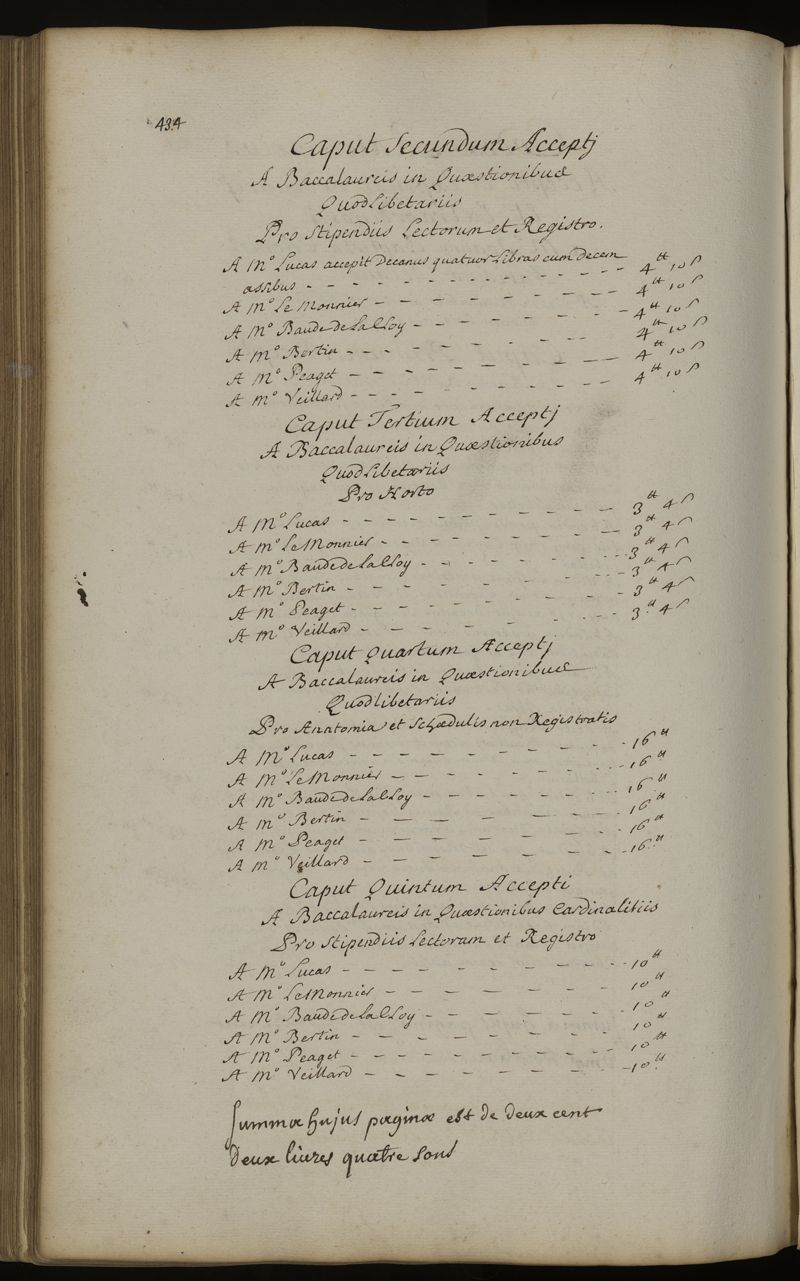 434
Caput Secundum Acceptj
A Baccalaureis in Quæstionibus
Quodlibetariis
Pro Stipendiis Lectorum et Registro.
A Mo Lucas accepit Decanus quatuor Libras cum decem
assibus - - - - - - - - - - - - 4tt 10s
A Mo Le Monnier - - - - - - - - 4tt 10s
A Mo Baude de La Cloy - - - - - - - 4tt 10s
A Mo Bertin - - - - - - - - 4tt 10s
A Mo Peaget - - - - - - - - 4tt 10s
A Mo Veillard - - - - - - - - 4tt 10s
Caput Tertium Acceptj
A Baccalaureis in Quæstionibus
Quodlibetariis
Pro Horto
A Mo Lucas - - - - - - - - - 3tt 4s
A Mo Le Monnier - - - - - - - - 3tt 4s
A Mo Baude de La Cloy - - - - - - - 3tt 4s
A Mo Bertin - - - - - - - - 3tt 4s
A Mo Peaget - - - - - - - - 3tt 4s
A Mo Veillard - - - - - - - - 3tt 4s
Caput Quartum Acceptj
A Baccalaureis in Quæstionibus
Quodlibetariis
Pro Anatomia et Schædulis non Registratis
A Mo Lucas - - - - - - - - 16tt
A Mo Le Monnier - - - - - - - 16tt
A Mo Baude de La Cloy - - - - - - - 16tt
A Mo Bertin - - - - - - - 16tt
A Mo Peaget - - - - - - - 16tt
A Mo Veillard - - - - - - - 16tt
Caput Quintum Accepti
A Baccalaureis in Quæstionibus Cardinalitiis
Pro Stipendiis Lectorum et Registro
A Mo Lucas - - - - - - - - 10tt
A Mo Le Monnier - - - - - - - 10tt
A Mo Baude de La Cloy - - - - - - 10tt
A Mo Bertin - - - - - - - 10tt
A Mo Peaget - - - - - - - - 10tt
A Mo Veillard - - - - - - - 10tt
Summa hujus paginæ est de deux cent
deux livres quatre sous